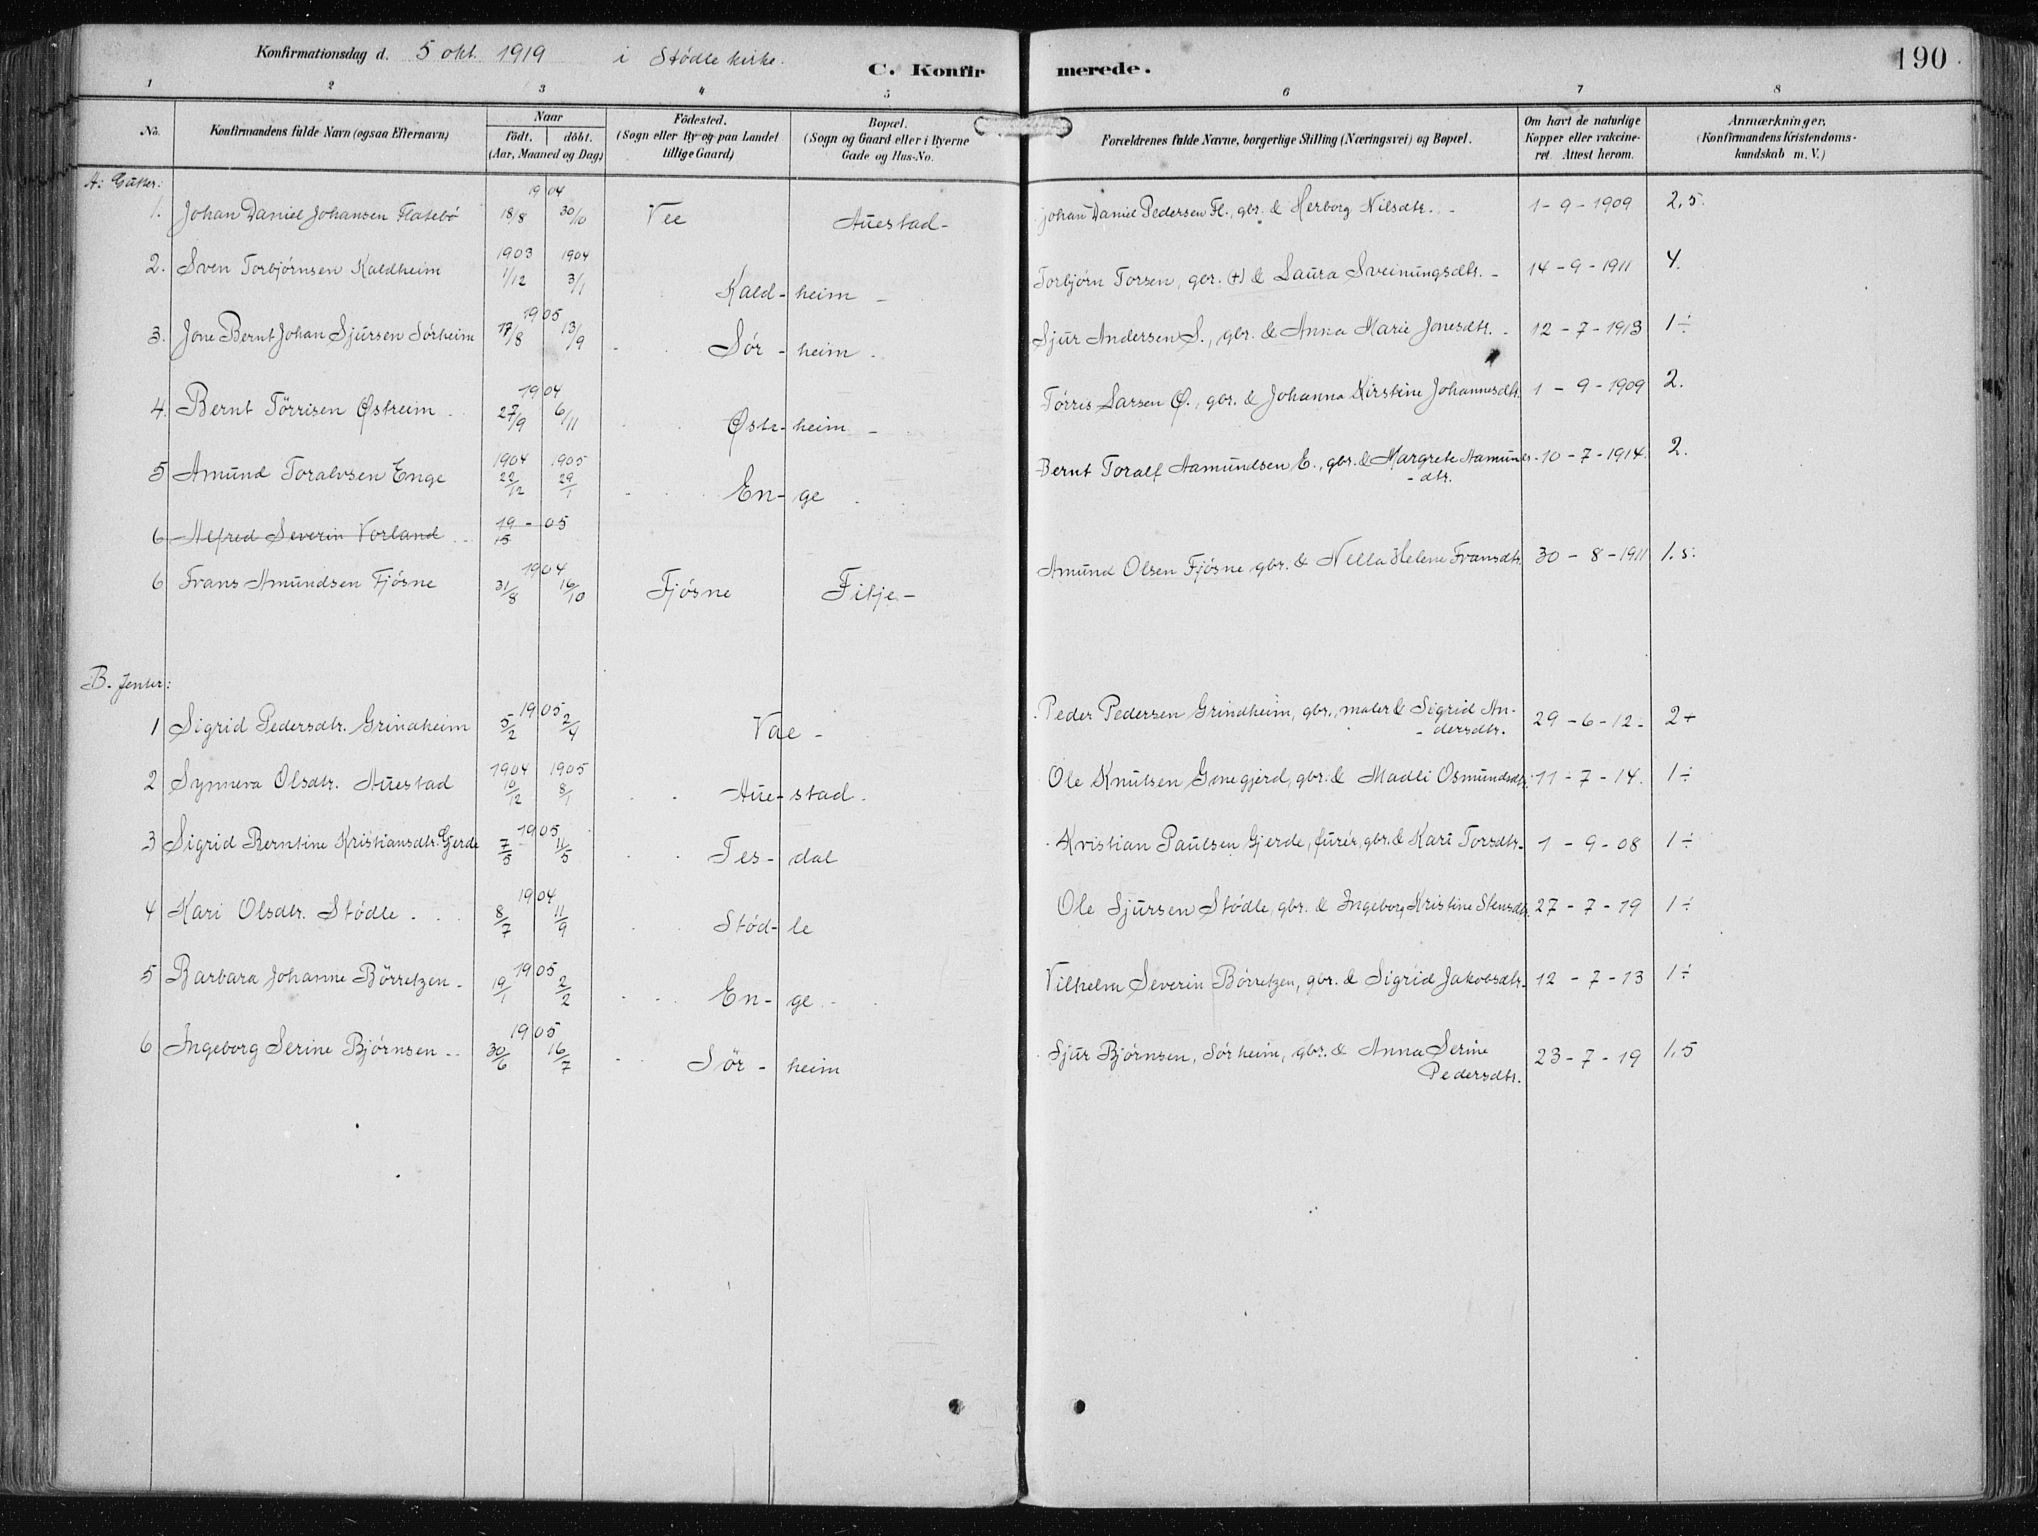 Konfirmationsdag d. 5 okt. 1919 i Stödle kirke.
C. Konfirmerede.
190
1 2 3 4 5 6 7 8
No.
Konfirmandens fulde Navn (ogsaa Efternavn)
Naar
födt. döbt.
(Aar, Maaned og Dag)
Födested.
(Sogn eller By og paa Landet
tillige Gaard)
Bopæl.
(Sogn og Gaard eller i Byerne
Gade og Hus-No.
Forældrenes fulde Navne, borgerlige Stilling (Næringsvei) og Bopæl.
Om havt de naturlige
Kopper eller vakcine-
ret. Attest herom.
Anmærkninger,
(Konfirmandens Kristendoms-
kundskab m. V.)
A: Gutter:
1904
1. Johan Daniel Johansen Flatebö 18/8 30/10 Vee Auestad - Johan Daniel Pedersen Fl., gbr. & Herborg Nilsdtr. - 1-9-1909 2,5.
1903 1904
2. Sven Torbjörnsen Kaldheim 1/12 3/1 Kald-heim - Torbjörn Torsen, gbr. (+) & Laura Sveinungsdtr. - 14-9-1911 4.
1905
3. Jone Bernt Johan Sjursen Sörheim 17/8 13/9 Sör-heim - Sjur Andersen S., gbr. & Anna Marie Jonesdtr. - 12-7-1913 1÷
1904
4. Bernt Törrisen Østreim 27/9 6/11 Østr-heim - Törris Larsen Ø., gbr. & Johanna Kirstine Johannesdtr. 1-9-1909 2.
1904 1905
5 Amund Toralvsen Enge 22/12 29/1 En-ge Bernt Toralf Aamundsen E., gbr. & Margrete Aamunds- 10-7-1914 2.
-dtr.
19-05
6 Alfred Severin Vorland 15
1904
6 Frans Amundsen Fjösne 31/8 16/10 Fjösne Fitje- Amund Olsen Fjösne gbr. & Nella Helene Fransdtr. 30-8-1911 1.5.
B. Jenter:
1905
1 Sigrid Pedersdtr. Grindheim 5/2 2/4 Vae - Peder Pedersen Grindheim, gbr., maler & Sigrid An- 29-6-12. 2+
-dersdtr.
1904 1905
2 Synneva Olsdtr. Auestad 10/12 8/1 Aue-stad. Ole Knutsen Gonegjerd, gbr. & Madli Osmundsdtr. 11-7-14. 1÷
1905
3 Sigrid Berntine Kristiansdtr. Gjerde 7/3 11/5 Tes-dal Kristian Paulsen Gjerde, furér, gbr. & Kari Torsdtr. 1-9-08 1÷
1904
4 Kari Olsdtr. Stödle . . 8/7 11/9 Stöd-le Ole Sjursen Stödle, gbr. & Ingeborg Kristine Stensdtr. 27-7-19 1÷
1905
5 Barbara Johanne Börretzen - 19/1 2/2 En-ge - Vilhelm Severin Börretzen, gbr. & Sigrid Jakobsdtr. 12-7-13 1÷
1905
6 Ingeborg Serine Björnsen .. 30/6 16/7 Sör-heim Sjur Björnsen, Sörheim, gbr. & Anna Serine 23-7-19 1,5
Pedersdtr.